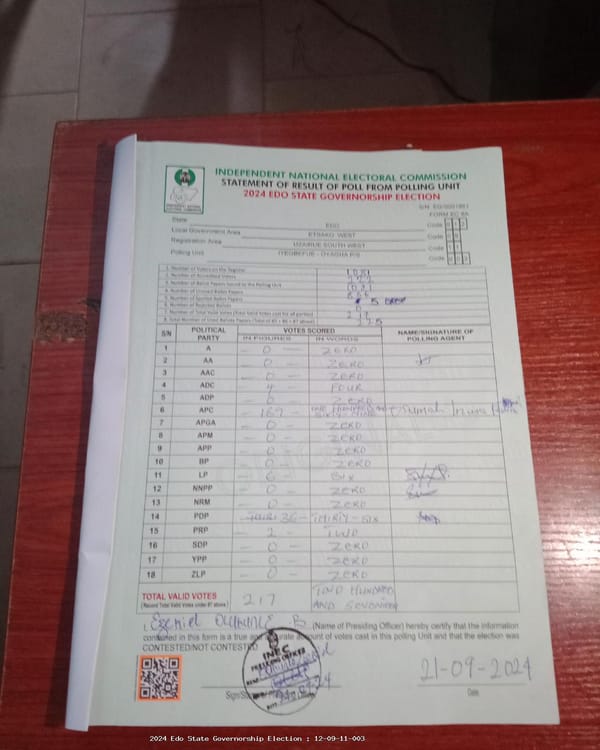 INDEPENDENT NATIONAL ELECTORAL COMMISSION
STATEMENT OF RESULT OF POLL FROM POLLING UNIT
2024 EDO STATE GOVERNORSHIP ELECTION
FORM EC 8A
State EDO Code
Local Government Area ETSAKO WEST Code
Registration Area UZAIRUE SOUTH WEST Code
Polling Unit Code
1. Number of Voters on the Register
2. Number of Accredited Voters
3. Number of Ballot Papers Issued to the Polling Unit
4. Number of Unused Ballot Papers
5. Number of Spoiled Ballot Papers
6. Number of Rejected Ballots
7. Number of Total Valid Votes (Total Valid votes cast for all parties)
8. Total Number of Used Ballot Papers
S/N POLITICAL PARTY VOTES SCORED NAME/SIGNATURE OF POLLING AGENT
IN FIGURES IN WORDS
1 A 0 ZERO
2 AA 0 ZERO
3 AAC 0 ZERO
4 ADC 4 FOUR
5 ADP 0 ZERO
6 APC 169 ONE HUNDRED AND SIXTY NINE
7 APGA 0 ZERO
8 APM 0 ZERO
9 APP 0 ZERO
10 BP 0 ZERO
11 LP 6 SIX
12 NNPP 0 ZERO
13 NRM 0 ZERO
14 PDP 36 THIRTY-SIX
15 PRP 2 TWO
16 SDP 0 ZERO
17 YPP 0 ZERO
18 ZLP 0 ZERO
TOTAL VALID VOTES 217 TWO HUNDRED AND SEVENTEEN
(Record Total Valid Votes under #7 above)
I, Ezekiel B. (Name of Presiding Officer) hereby certify that the information
contained in this form is a true and accurate account of votes cast in this polling Unit and that the election was
CONTESTED/NOT CONTESTED
INEC
PRESIDING OFFICER
21-09-2024
Date
2024 Edo State Governorship Election : 12-09-11-003